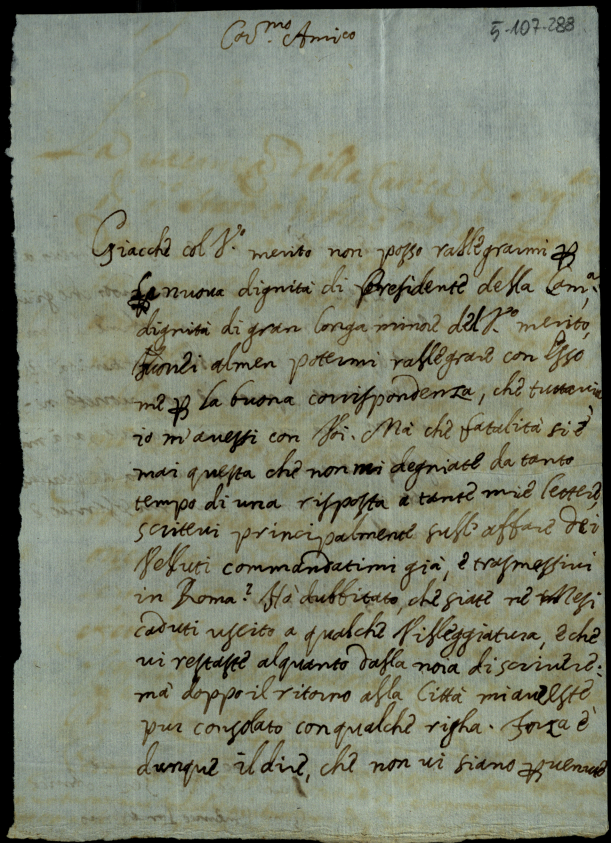 5-107-288
Car.mo Amico
Giacchè col V.o merito non posso rallegrarmi ꝑ
la nuova dignità di Presidente della Cam.a,
dignità di gran longa minore del V.o merito,
vorrei almen potermi rallegrare con esso
me ꝑ la buona corrispondenza, che tuttavia
io m'avessi con Voi. Mà che fatalità si è
mai questa che non mi degniate da tanto
tempo di una risposta a tante mie lettere,
scrittevi principalmente sull'affare dei
Velluti commandatimi già, e trasmessivi
in Roma? Hò dubbitato, che siate nè Mesi
caduti uscito a qualche Villeggiatura, e che
vi restaste alquanto dalla noia di scrivere:
mà doppo il ritorno alla Città mi avreste
pur consolato con qualche righa. Forza è
dunque il dire, che non vi siano ꝑvenute